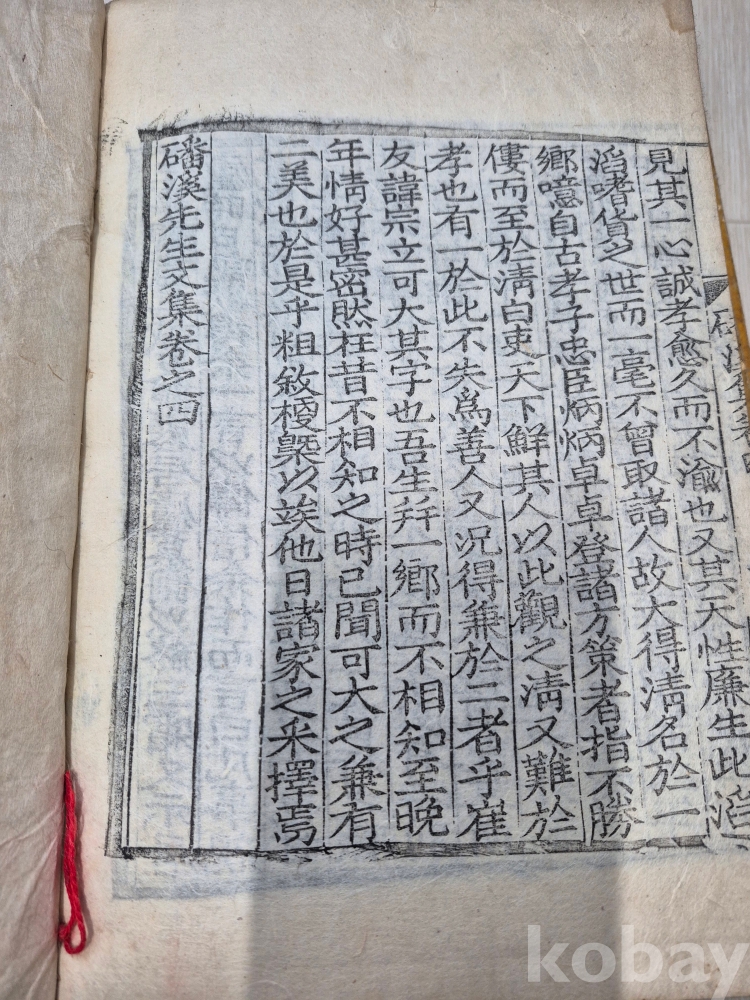 見其一心誠孝愈久而不渝也又其天性廉生此滔
滔嗜貨之世而一毫不曾取諸人故大得淸名於一
鄕噫自古孝子忠臣炳炳卓卓登諸方策者指不勝
僂而至於淸白吏天下鮮其人以此觀之淸又難於
孝也有一於此不失爲善人又况得兼於二者乎崔
友諱宗立可大其字也吾生並一鄕而不相知至晩
年情好甚密然在昔不相知之時已聞可大之兼有
二美也於是乎粗敘梗槩以竢他日諸家之采擇焉
磻溪先生文集卷之四
kobay